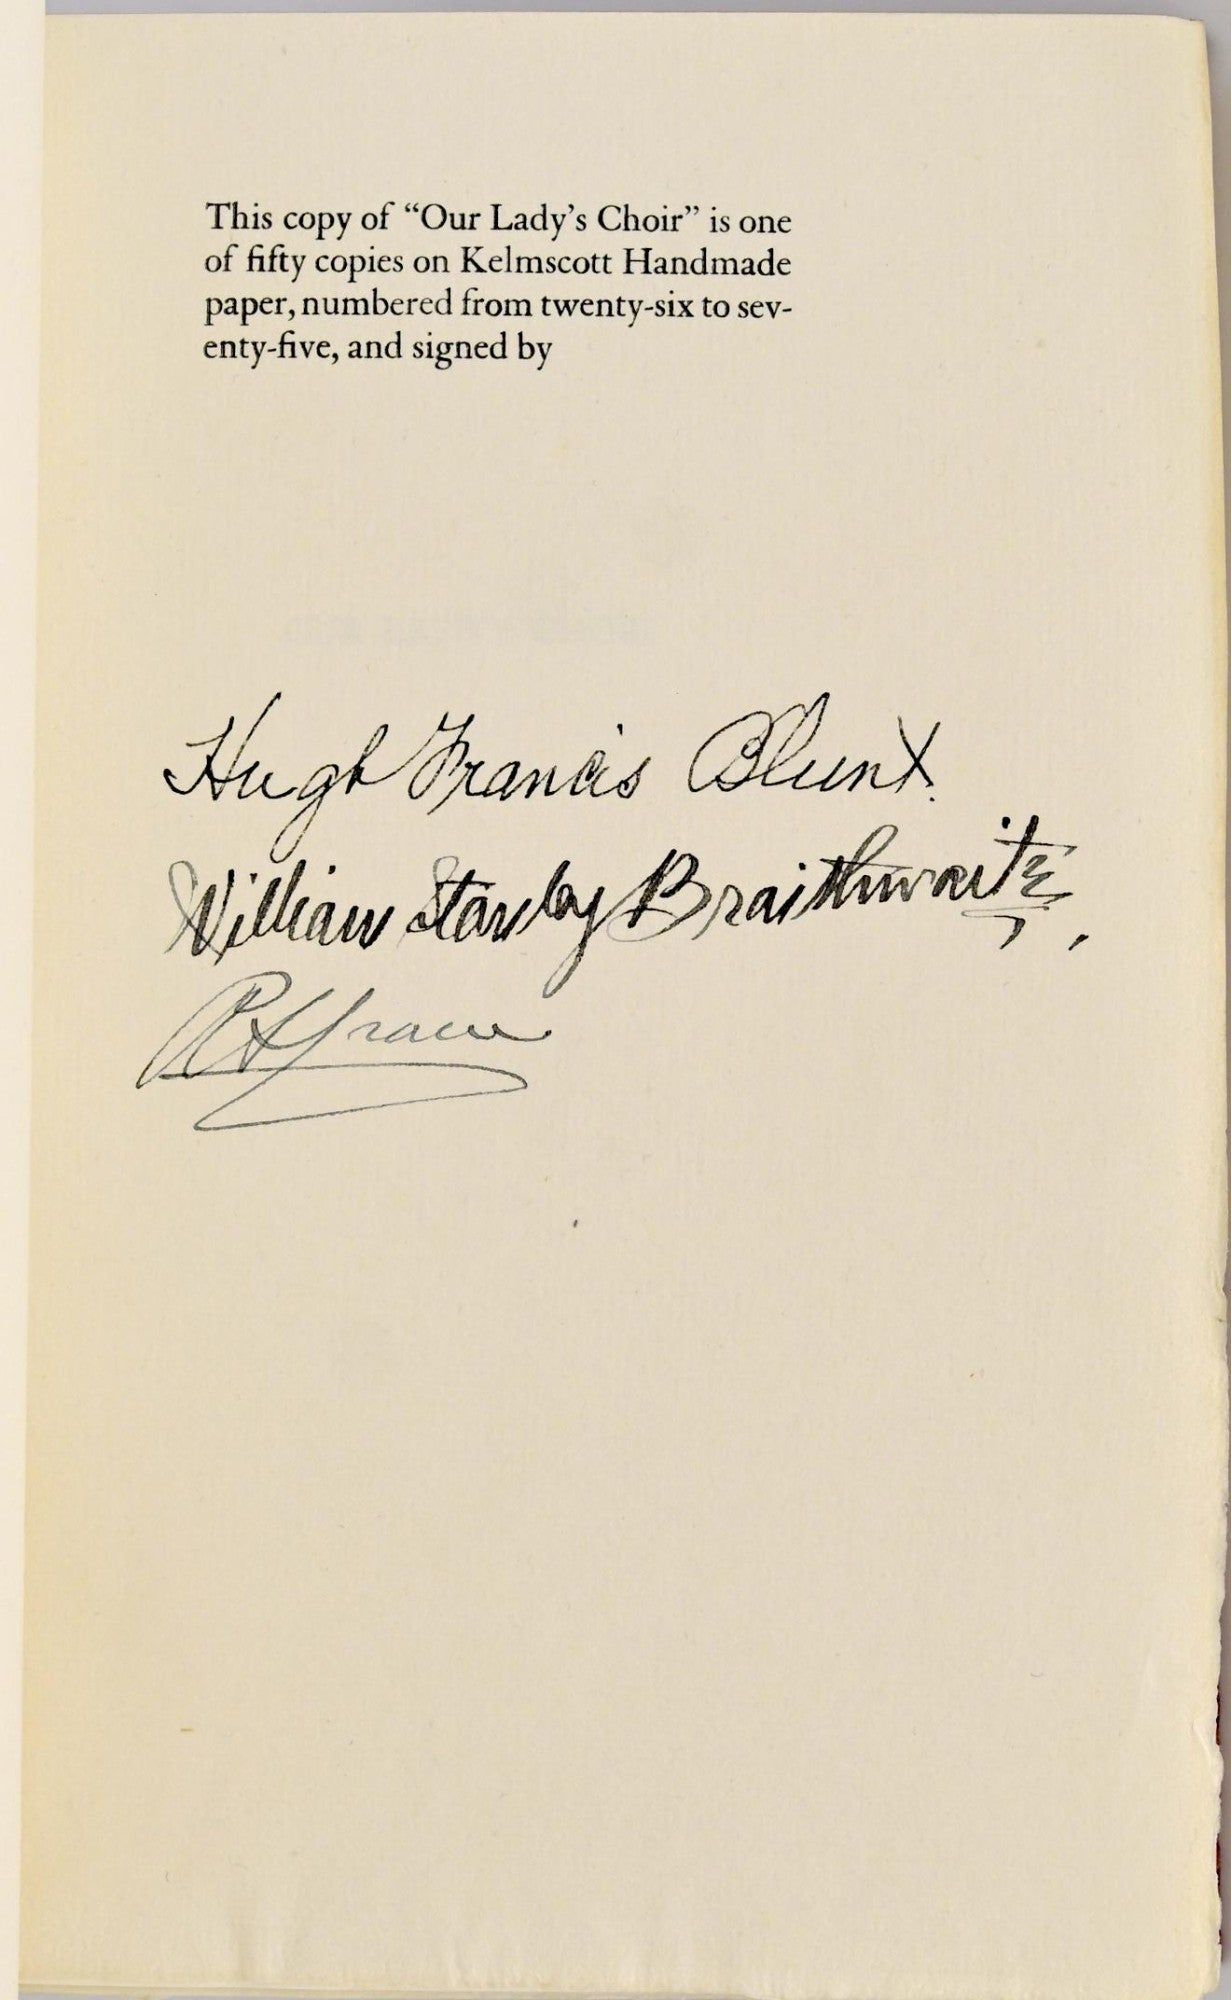 This copy of “Our Lady’s Choir” is one
of fifty copies on Kelmscott Handmade
paper, numbered from twenty-six to sev-
enty-five, and signed by
Hugh Francis Blunt.
William Stanley Braithwaite,